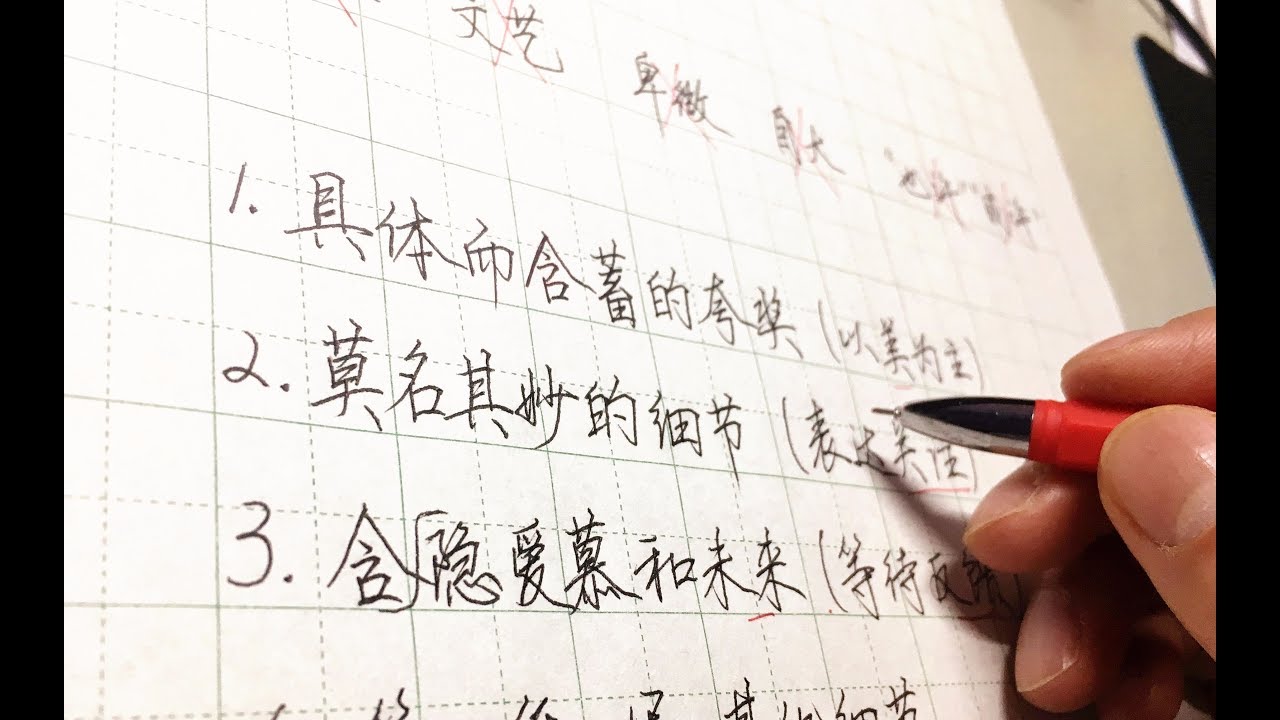 文艺 卑微 自大 "也许"
1. 具体而含蓄的夸奖 (以美为主)
2. 莫名其妙的细节 (表达关注)
3. 含隐爱慕和未来 (等待反馈)
其他细节